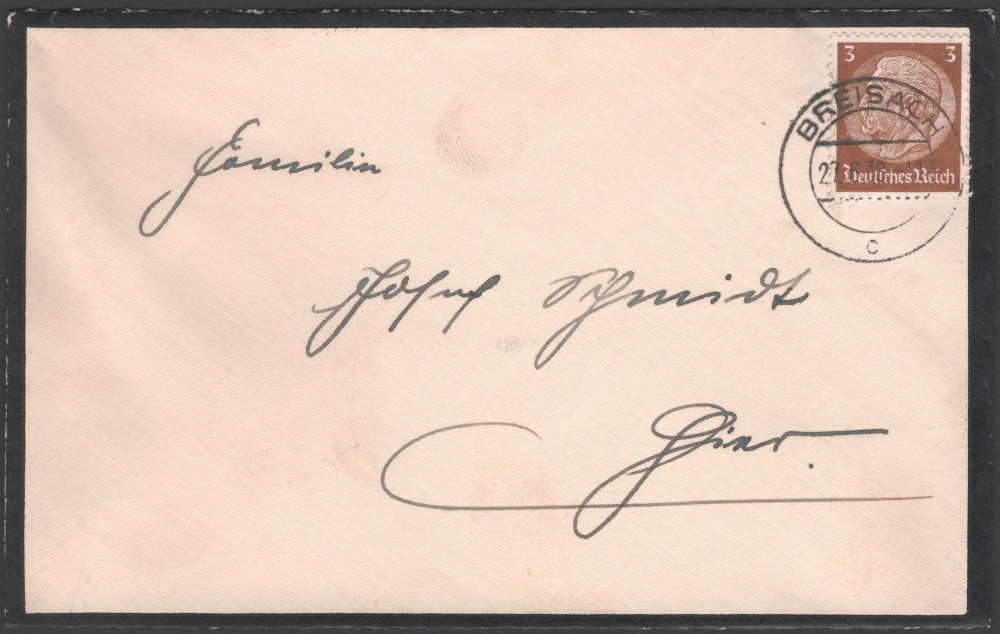 3 3
Deutsches Reich
BREISACH
c
Familie
Josef Schmidt
Hier.